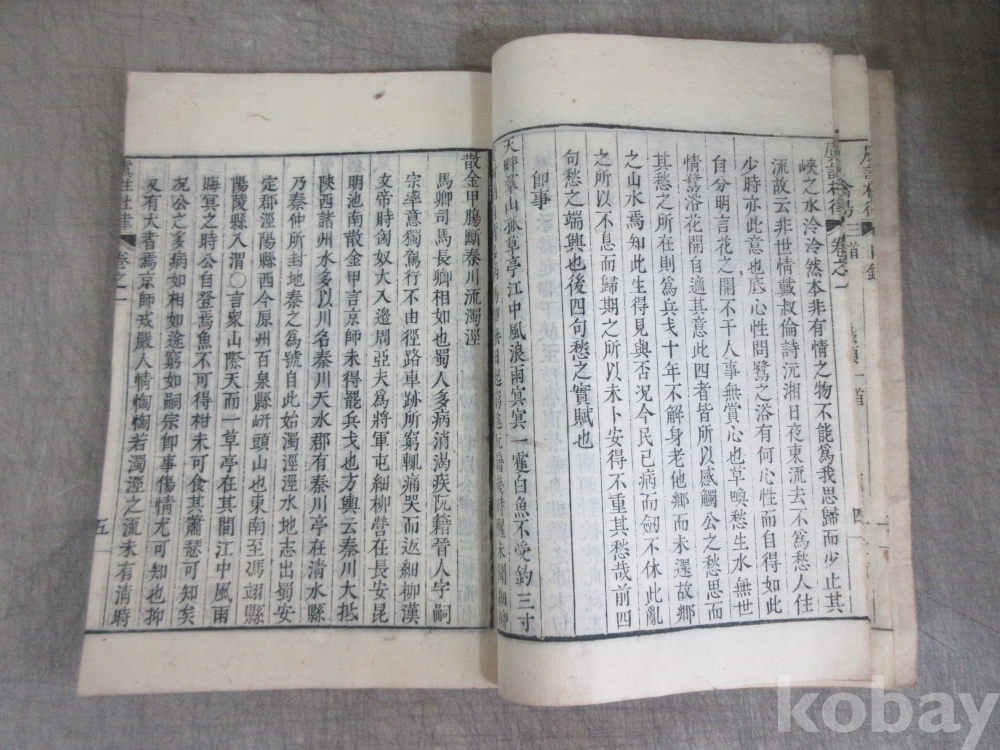 峽之水泠泠然本非有情之物不能爲我思歸而少止其
流故云非世情戴叔倫詩沅湘日夜東流去不爲愁人住
少時亦此意也底心性問鷺之浴有何心性而自得如此
自分明言花之開不干人事無賞心也草喚愁生水無世
情鷺浴花開自適其意此四者皆所以感觸公之愁思而
其愁之所在則爲兵戈十年不解身老他鄉而未還故鄉
之山水焉知此生得見與否況今民已病而劒不休此亂
之所以不息而歸期之所以未卜安得不重其愁哉前四
句愁之端興也後四句愁之實賦也
卽事
天畔羣山孤草亭江中風浪雨冥冥一䨇白魚不受釣三寸
散金甲腸斷秦川流濁涇
馬卿司馬長卿相如也蜀人多病消渴疾阮籍晉人字嗣
宗率意獨駕行不由徑路車跡所窮輒痛哭而返細柳漢
文帝時匈奴大入邊周亞夫爲將軍屯細柳營在長安昆
明池南散金甲言京師未得罷兵戈也方輿云秦川大抵
陝西諸州水多以川名秦川天水郡有秦川亭在清水縣
乃秦仲所封地秦之爲號自此始濁涇涇水地志出蜀安
定郡涇陽縣西今原州百泉縣岍頭山也東南至馮翊縣
陽陵縣入渭〇言衆山際天而一草亭在其間江中風雨
晦冥之時公自登焉魚不可得柑未可食其蕭瑟可知矣
況公之多病如相如途窮如嗣宗卽事傷情尤可知也抑
又有大者焉京師戎嚴人情恟恟若濁涇之流未有清時
虞註杜律
卷之一
五